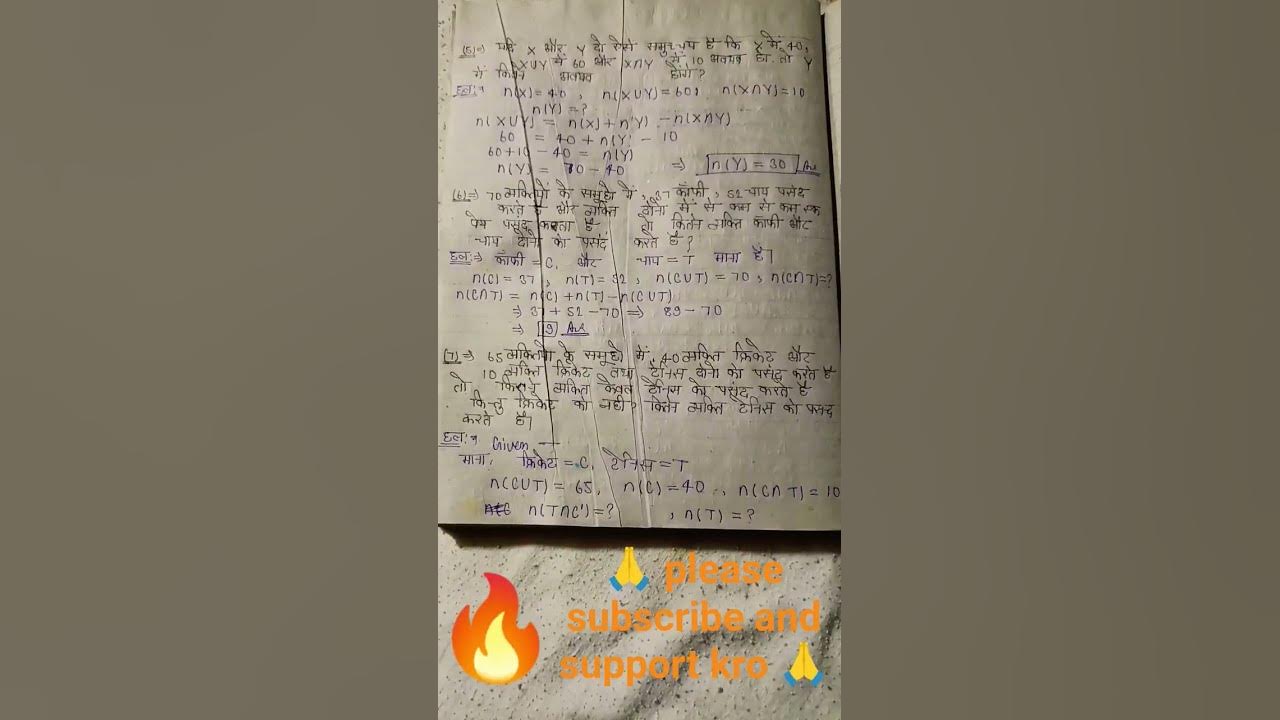 (5)⇒ यदि X और Y दो ऐसे समुच्चय है कि X में 40,
X∪Y में 60 और X∩Y में 10 अवयव हो. तो Y
में कितने अवयव होंगे?
हल:⇒ n(X) = 40, n(X∪Y) = 60, n(X∩Y) = 10
n(Y) = ?
n(X∪Y) = n(X) + n(Y) - n(X∩Y)
60 = 40 + n(Y) - 10
60+10 - 40 = n(Y)
n(Y) = 70 - 40 ⇒ n(Y) = 30 Ans
(6)⇒ 70 व्यक्तियों के समूह में, 37 कॉफी, 52 चाय पसंद
करते है और व्यक्ति दोनों में से कम से कम एक
पेय पसंद करता है तो कितने व्यक्ति कॉफी और
चाय दोनों को पसंद करते है?
हल:⇒ कॉफी = C, और चाय = T माना है।
n(C) = 37, n(T) = 52, n(C∪T) = 70, n(C∩T)=?
n(C∩T) = n(C) + n(T) - n(C∪T)
⇒ 37 + 52 - 70 ⇒ 89 - 70
⇒ Ans
(7)⇒ 65 व्यक्तियों के समूह में, 40 व्यक्ति क्रिकेट और
10 व्यक्ति क्रिकेट तथा टेनिस दोनों को पसंद करते है
तो कितने व्यक्ति केवल टेनिस को पसंद करते है
किन्तु क्रिकेट को नहीं? कितने व्यक्ति टेनिस को पसंद
करते है।
हल:⇒ Given —
माना, क्रिकेट = C, टेनिस = T
n(C∪T) = 65, n(C) = 40, n(C∩T) = 10
n(T∩C') = ?, n(T) = ?
🙏 please
subscribe and
support kro 🙏